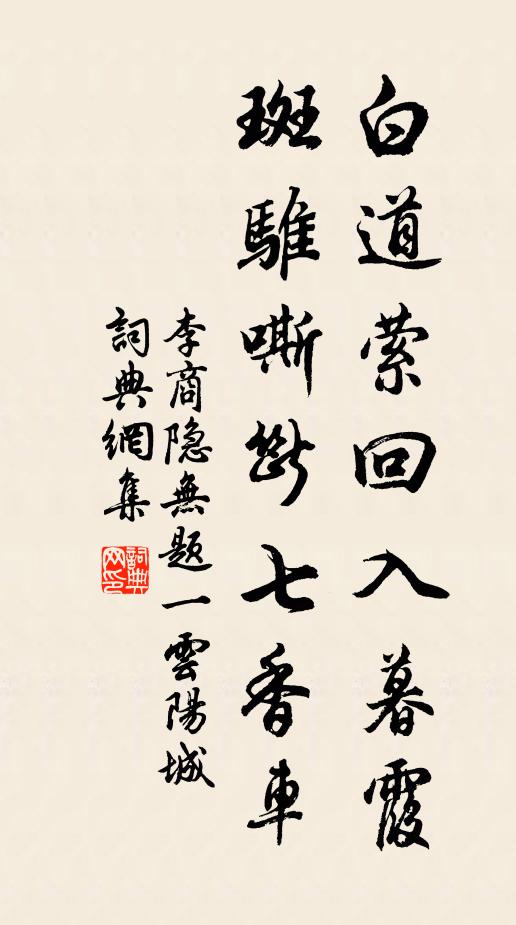 白道萦回入暮霞
斑騅嘶斷七香車
李商隐無題一雲陽城
詞典網集
詞典网印